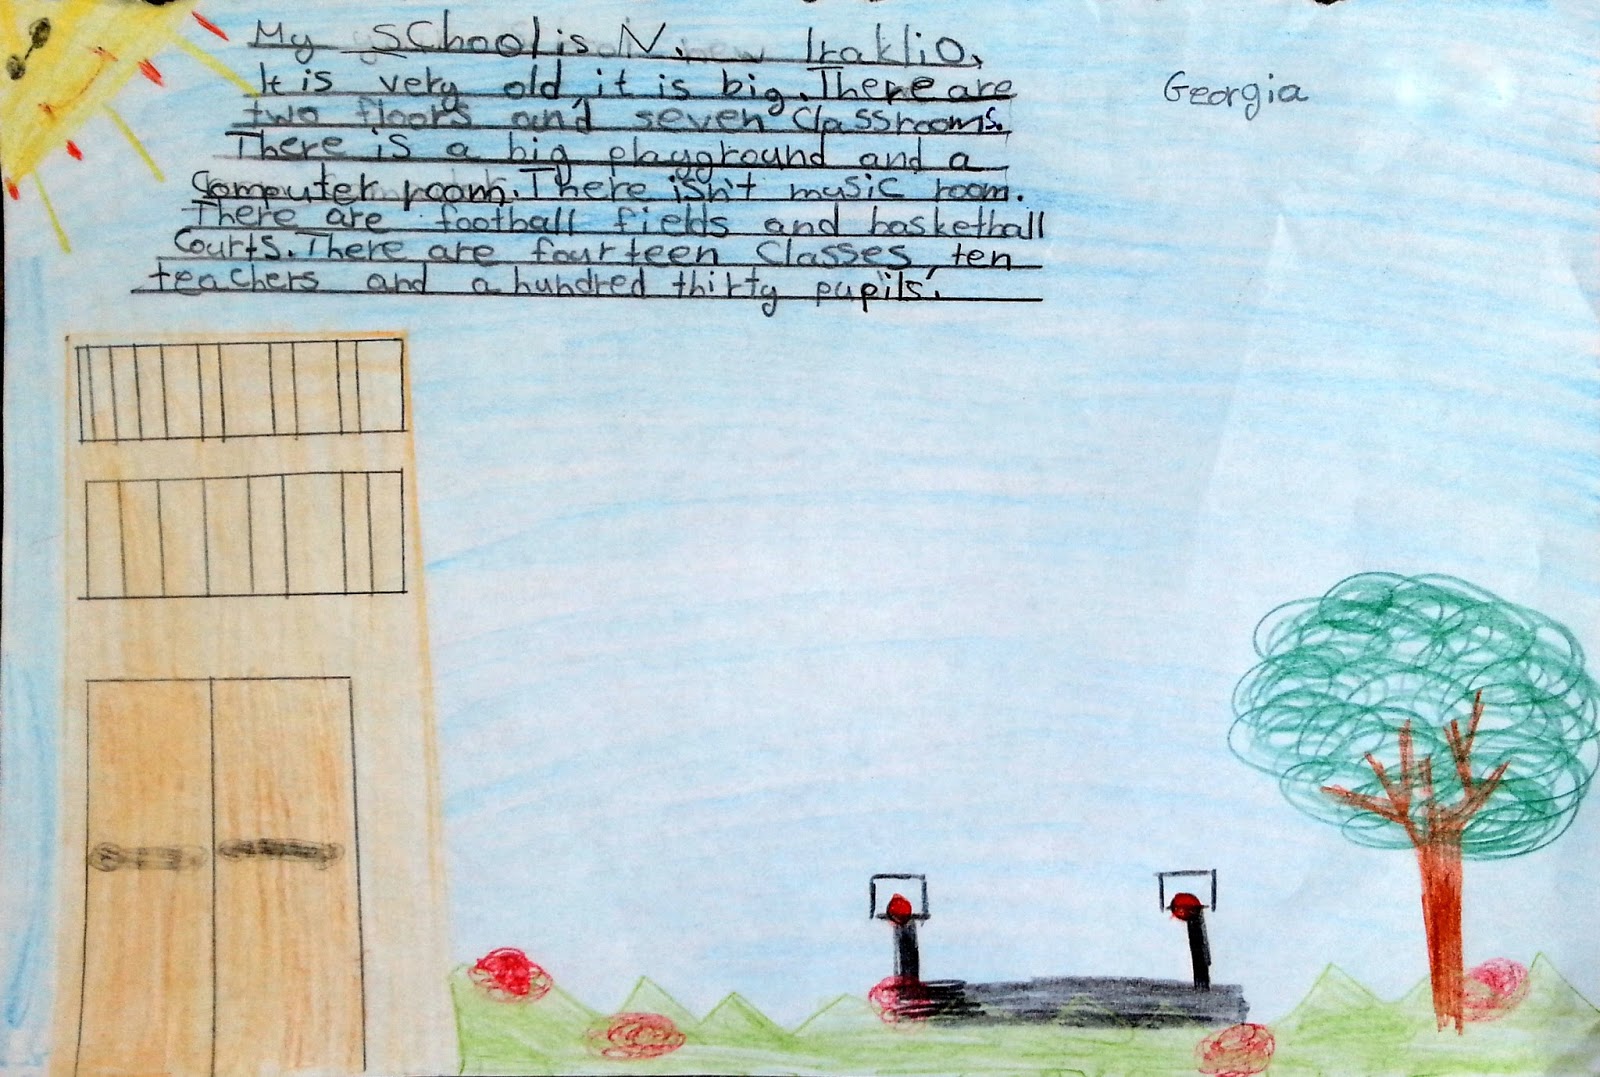 My school is N. Iraklio.
It is very old, it is big. There are
two floors and seven classrooms.
There is a big playground and a
computer room. There isn't music room.
There are football fields and basketball
courts. There are fourteen classes, ten
teachers and a hundred thirty pupils.
Georgia